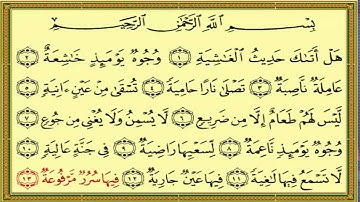 بِسْمِ اللَّهِ الرَّحْمَٰنِ الرَّحِيمِ
هَلْ أَتَىٰكَ حَدِيثُ الْغَاشِيَةِ ۝١ وُجُوهٌ يَوْمَئِذٍ خَاشِعَةٌ ۝٢
عَامِلَةٌ نَّاصِبَةٌ ۝٣ تَصْلَىٰ نَارًا حَامِيَةً ۝٤ تُسْقَىٰ مِنْ عَيْنٍ ءَانِيَةٍ ۝٥
لَّيْسَ لَهُمْ طَعَامٌ إِلَّا مِن ضَرِيعٍ ۝٦ لَّا يُسْمِنُ وَلَا يُغْنِي مِن جُوعٍ ۝٧
وُجُوهٌ يَوْمَئِذٍ نَّاعِمَةٌ ۝٨ لِّسَعْيِهَا رَاضِيَةٌ ۝٩ فِي جَنَّةٍ عَالِيَةٍ ۝١٠
لَّا تَسْمَعُ فِيهَا لَٰغِيَةً ۝١١ فِيهَا عَيْنٌ جَارِيَةٌ ۝١٢ فِيهَا سُرُرٌ مَّرْفُوعَةٌ ۝١٣